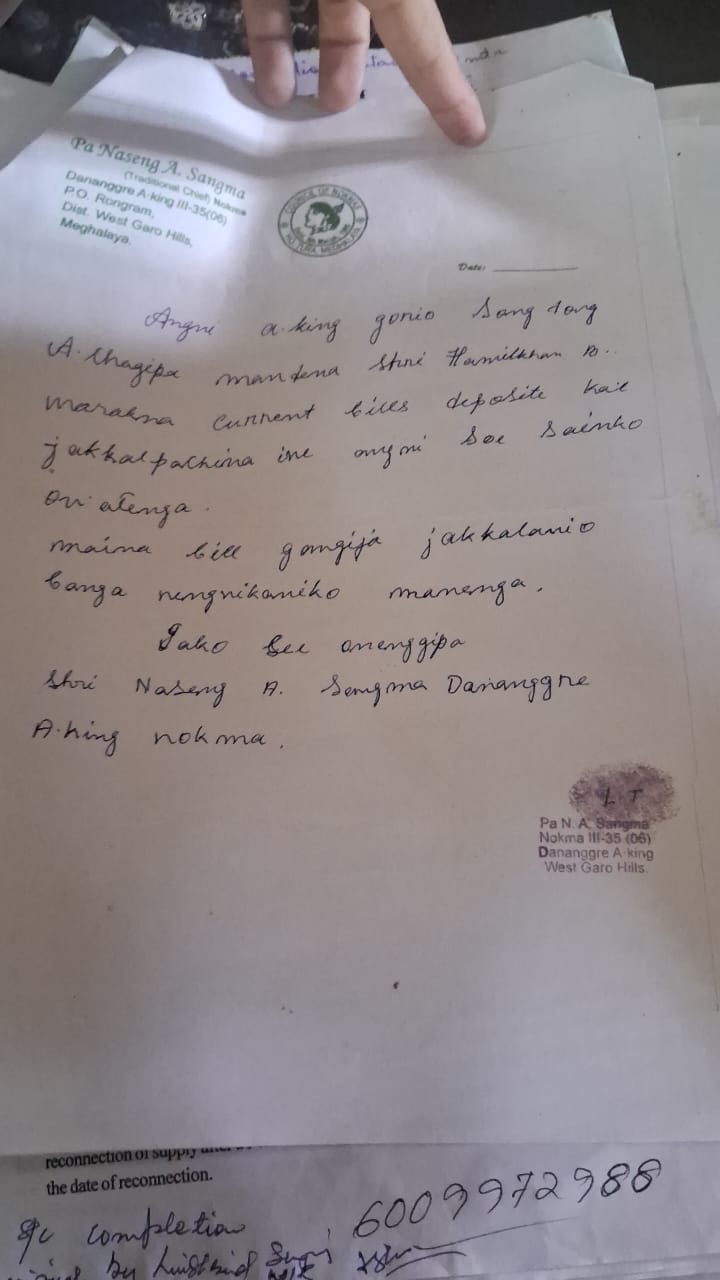 Pa Naseng A. Sangma
(Traditional Chief) Nokma
Dananggre A·king III-35(06)
P.O. Rongram,
Dist. West Garo Hills,
Meghalaya.
COUNCIL OF NOKMA
Date:
Angni a·king gonio Song dong
A·Chagipa mandena Shri Hamilkhan B.
marakna current bills deposite ka·e
jakkalpachina ine angni Soe Sainko
on·atenga.
maina bill gongija jakkalanio
banga nengnikaniko manenga.
Iako See onenggipa
Shri Naseng A. Sangma Dananggre
A·king nokma.
L T
Pa N. A. Sangma
Nokma III-35 (06)
Dananggre A·king
West Garo Hills.
reconnection of supply
the date of reconnection.
S/c completion 6009972988
by